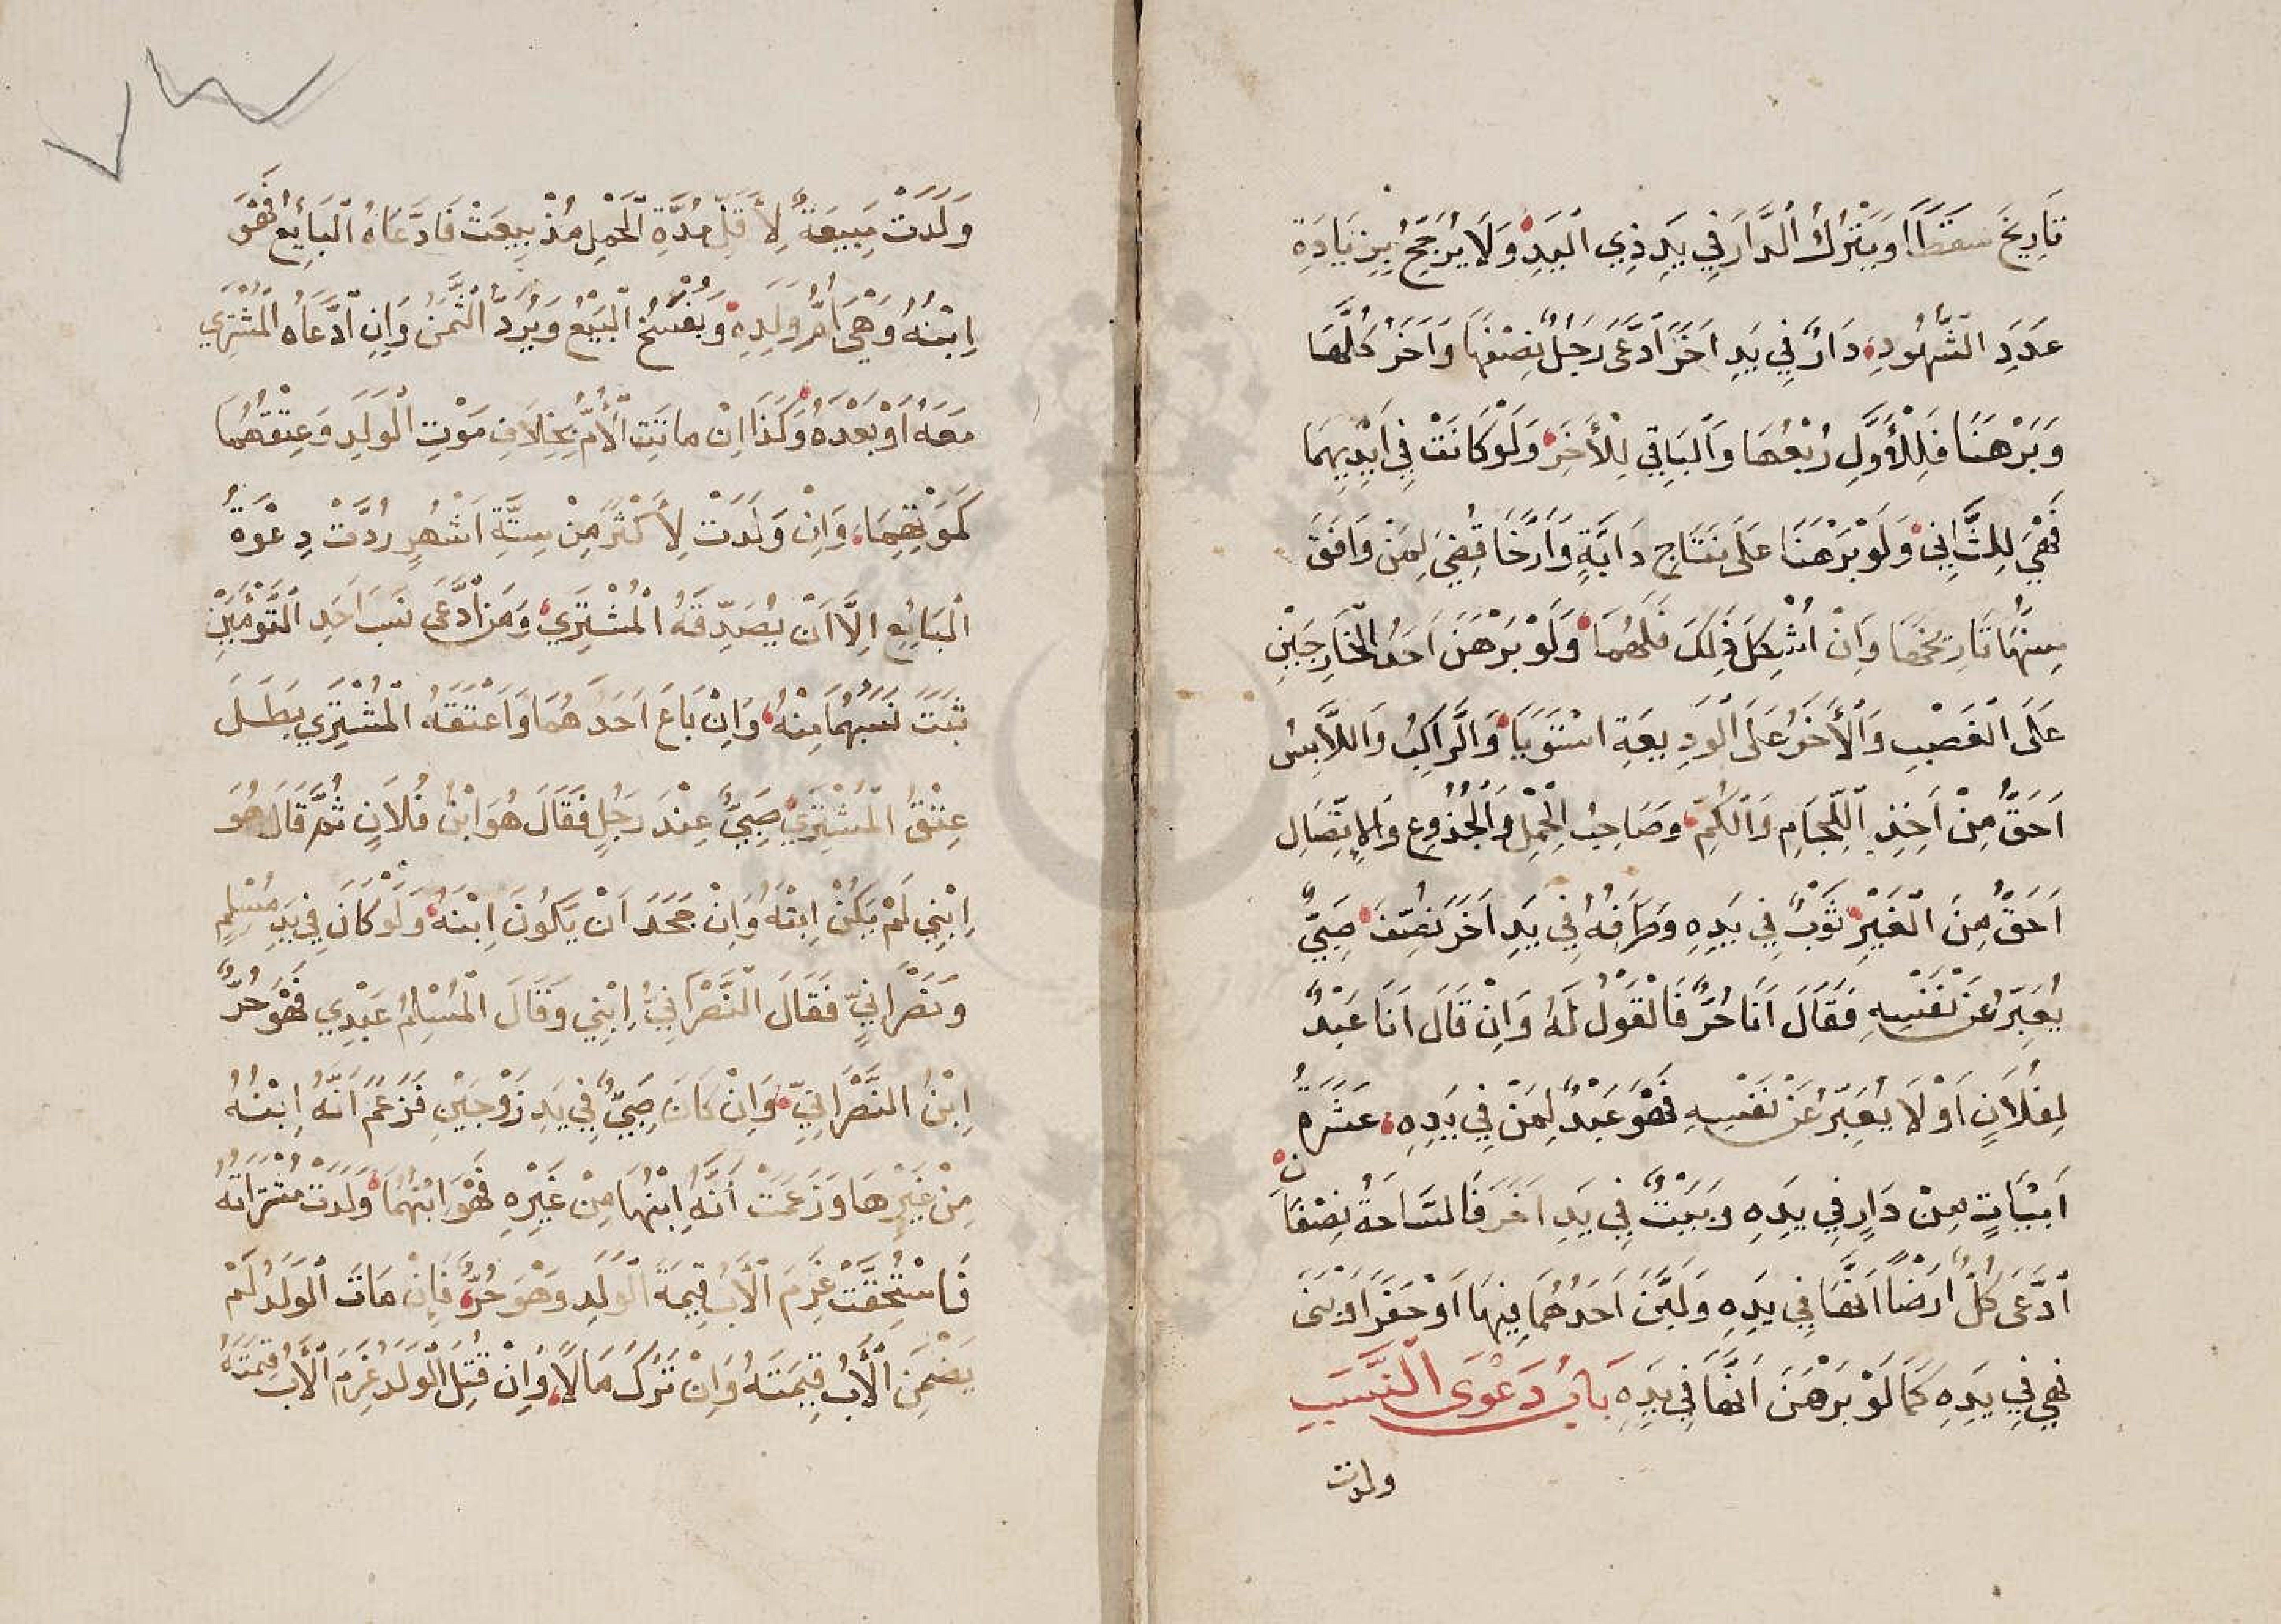 تَارِيخَ سَقَطَا وَيَتْرُكُ الدَّارَ فِي يَدِ ذِي الْيَدِ وَلَا يُرَجَّحُ بِزِيَادَةِ
عَدَدِ الشُّهُودِ دَارٌ فِي يَدِ اٰخَرَ ادَّعَى رَجُلٌ نِصْفَهَا وَاٰخَرُ كُلَّهَا
وَبَرْهَنَا فَلِلْأَوَّلِ رُبْعُهَا وَالْبَاقِي لِلْأٰخَرِ وَلَوْ كَانَتْ فِي اَيْدِيهِمَا
فَهْيَ لِلثَّانِي وَلَوْ بَرْهَنَا عَلَى نِتَاجِ دَابَّةٍ وَاَرَّخَا قُضِيَ لِمَنْ وَافَقَ
سِنُّهَا تَارِيخَهَا وَاِنْ اُشْكِلَ ذٰلِكَ فَلَهُمَا وَلَوْ بَرْهَنَ اَحَدُ الْخَارِجَيْنِ
عَلَى الْغَصْبِ وَالْأٰخَرُ عَلَى الْوَدِيعَةِ اسْتَوَيَا وَالرَّاكِبُ وَاللَّابِسُ
اَحَقُّ مِنْ اٰخِذِ اللِّجَامِ وَالْكُمِّ وَصَاحِبُ الْحِمْلِ وَالْجُذُوعِ وَالْاِتِّصَالِ
اَحَقُّ مِنَ الْغَيْرِ ثَوْبٌ فِي يَدِهِ وَطَرَفُهُ فِي يَدِ اٰخَرَ نُصِّفَ صَبِيٌّ
يُعَبِّرُ عَنْ نَفْسِهِ فَقَالَ اَنَا حُرٌّ فَالْقَوْلُ لَهُ وَاِنْ قَالَ اَنَا عَبْدٌ
لِفُلَانٍ اَوْ لَا يُعَبِّرُ عَنْ نَفْسِهِ فَهْوَ عَبْدٌ لِمَنْ فِي يَدِهِ عَشَرَةُ
اَبْيَاتٍ مِنْ دَارٍ فِي يَدِهِ وَبَيْتٌ فِي يَدِ اٰخَرَ فَالسَّاحَةُ نِصْفَانِ
اِدَّعَى كُلٌّ اَرْضًا اَنَّهَا فِي يَدِهِ وَلَبَّنَ اَحَدُهُمَا فِيهَا اَوْ حَفَرَ اَوْ بَنَى
فَهِيَ فِي يَدِهِ كَمَا لَوْ بَرْهَنَ اَنَّهَا فِي يَدِهِ بَابُ دَعْوَى النَّسَبِ
ولدت
وَلَدَتْ مَبِيعَةٌ لِأَقَلِّ مُدَّةِ الْحَمْلِ مُذْ بِيعَتْ فَادَّعَاهُ الْبَائِعُ فَهْوَ
اِبْنُهُ وَهْيَ اُمُّ وَلَدِهِ وَيُفْسَخُ الْبَيْعُ وَيُرَدُّ الثَّمَنُ وَاِنِ ادَّعَاهُ الْمُشْتَرِي
مَعَهُ اَوْ بَعْدَهُ وَكَذَا اِنْ مَاتَتِ الْأُمُّ بِخِلَافِ مَوْتِ الْوَلَدِ وَعِتْقُهُمَا
كَمَوْتِهِمَا وَاِنْ وَلَدَتْ لِأَكْثَرَ مِنْ سِتَّةِ اَشْهُرٍ رُدَّتْ دِعْوَةُ
الْبَائِعِ اِلَّا اَنْ يُصَدِّقَهُ الْمُشْتَرِي وَمَنِ ادَّعَى نَسَبَ اَحَدِ التَّوْأَمَيْنِ
ثَبَتَ نَسَبُهُمَا مِنْهُ وَاِنْ بَاعَ اَحَدَهُمَا وَاَعْتَقَهُ الْمُشْتَرِي بَطَلَ
عِتْقُ الْمُشْتَرِي صَبِيٌّ عِنْدَ رَجُلٍ فَقَالَ هُوَ ابْنُ فُلَانٍ ثُمَّ قَالَ هُوَ
اِبْنِي لَمْ يَكُنْ اِبْنَهُ وَاِنْ جَحَدَ اَنْ يَكُونَ اِبْنَهُ وَلَوْ كَانَ فِي يَدِ مُسْلِمٍ
وَنَصْرَانِيٍّ فَقَالَ النَّصْرَانِيُّ اِبْنِي وَقَالَ الْمُسْلِمُ عَبْدِي فَهْوَ حُرٌّ
اِبْنُ النَّصْرَانِيِّ وَاِنْ كَانَ صَبِيٌّ فِي يَدِ زَوْجَيْنِ فَزَعَمَ اَنَّهُ اِبْنُهُ
مِنْ غَيْرِهَا وَزَعَمَتْ اَنَّهُ اِبْنُهَا مِنْ غَيْرِهِ فَهْوَ ابْنُهُمَا وَلَدَتْ مُشْتَرَاتُهُ
فَاسْتُحِقَّتْ غَرِمَ الْأَبُ قِيمَةَ الْوَلَدِ وَهْوَ حُرٌّ فَاِنْ مَاتَ الْوَلَدُ لَمْ
يَضْمَنِ الْأَبُ قِيمَتَهُ وَاِنْ تَرَكَ مَالًا وَاِنْ قُتِلَ الْوَلَدُ غَرِمَ الْأَبُ قِيمَتَهُ